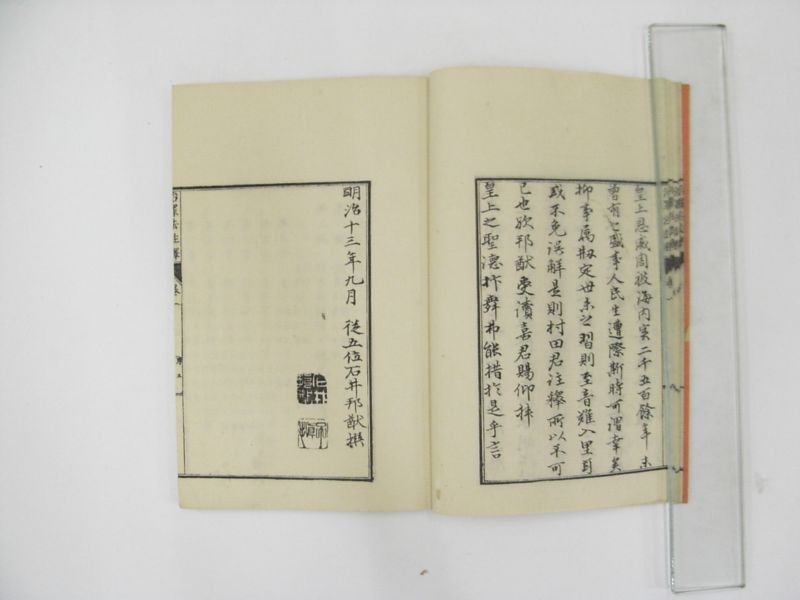 皇上恩威周被海内実二千五百餘年未
曽有之盛事人民生遭際斯時可謂幸矣
抑事属刱定世未之習則至音難入里耳
或不免誤解是則村田君注釋所以不可
已也欤邦猷受讀喜君賜仰拝
皇上之聖德抃舞弗能措於是乎言
明治十三年九月 從五位石井邦猷撰